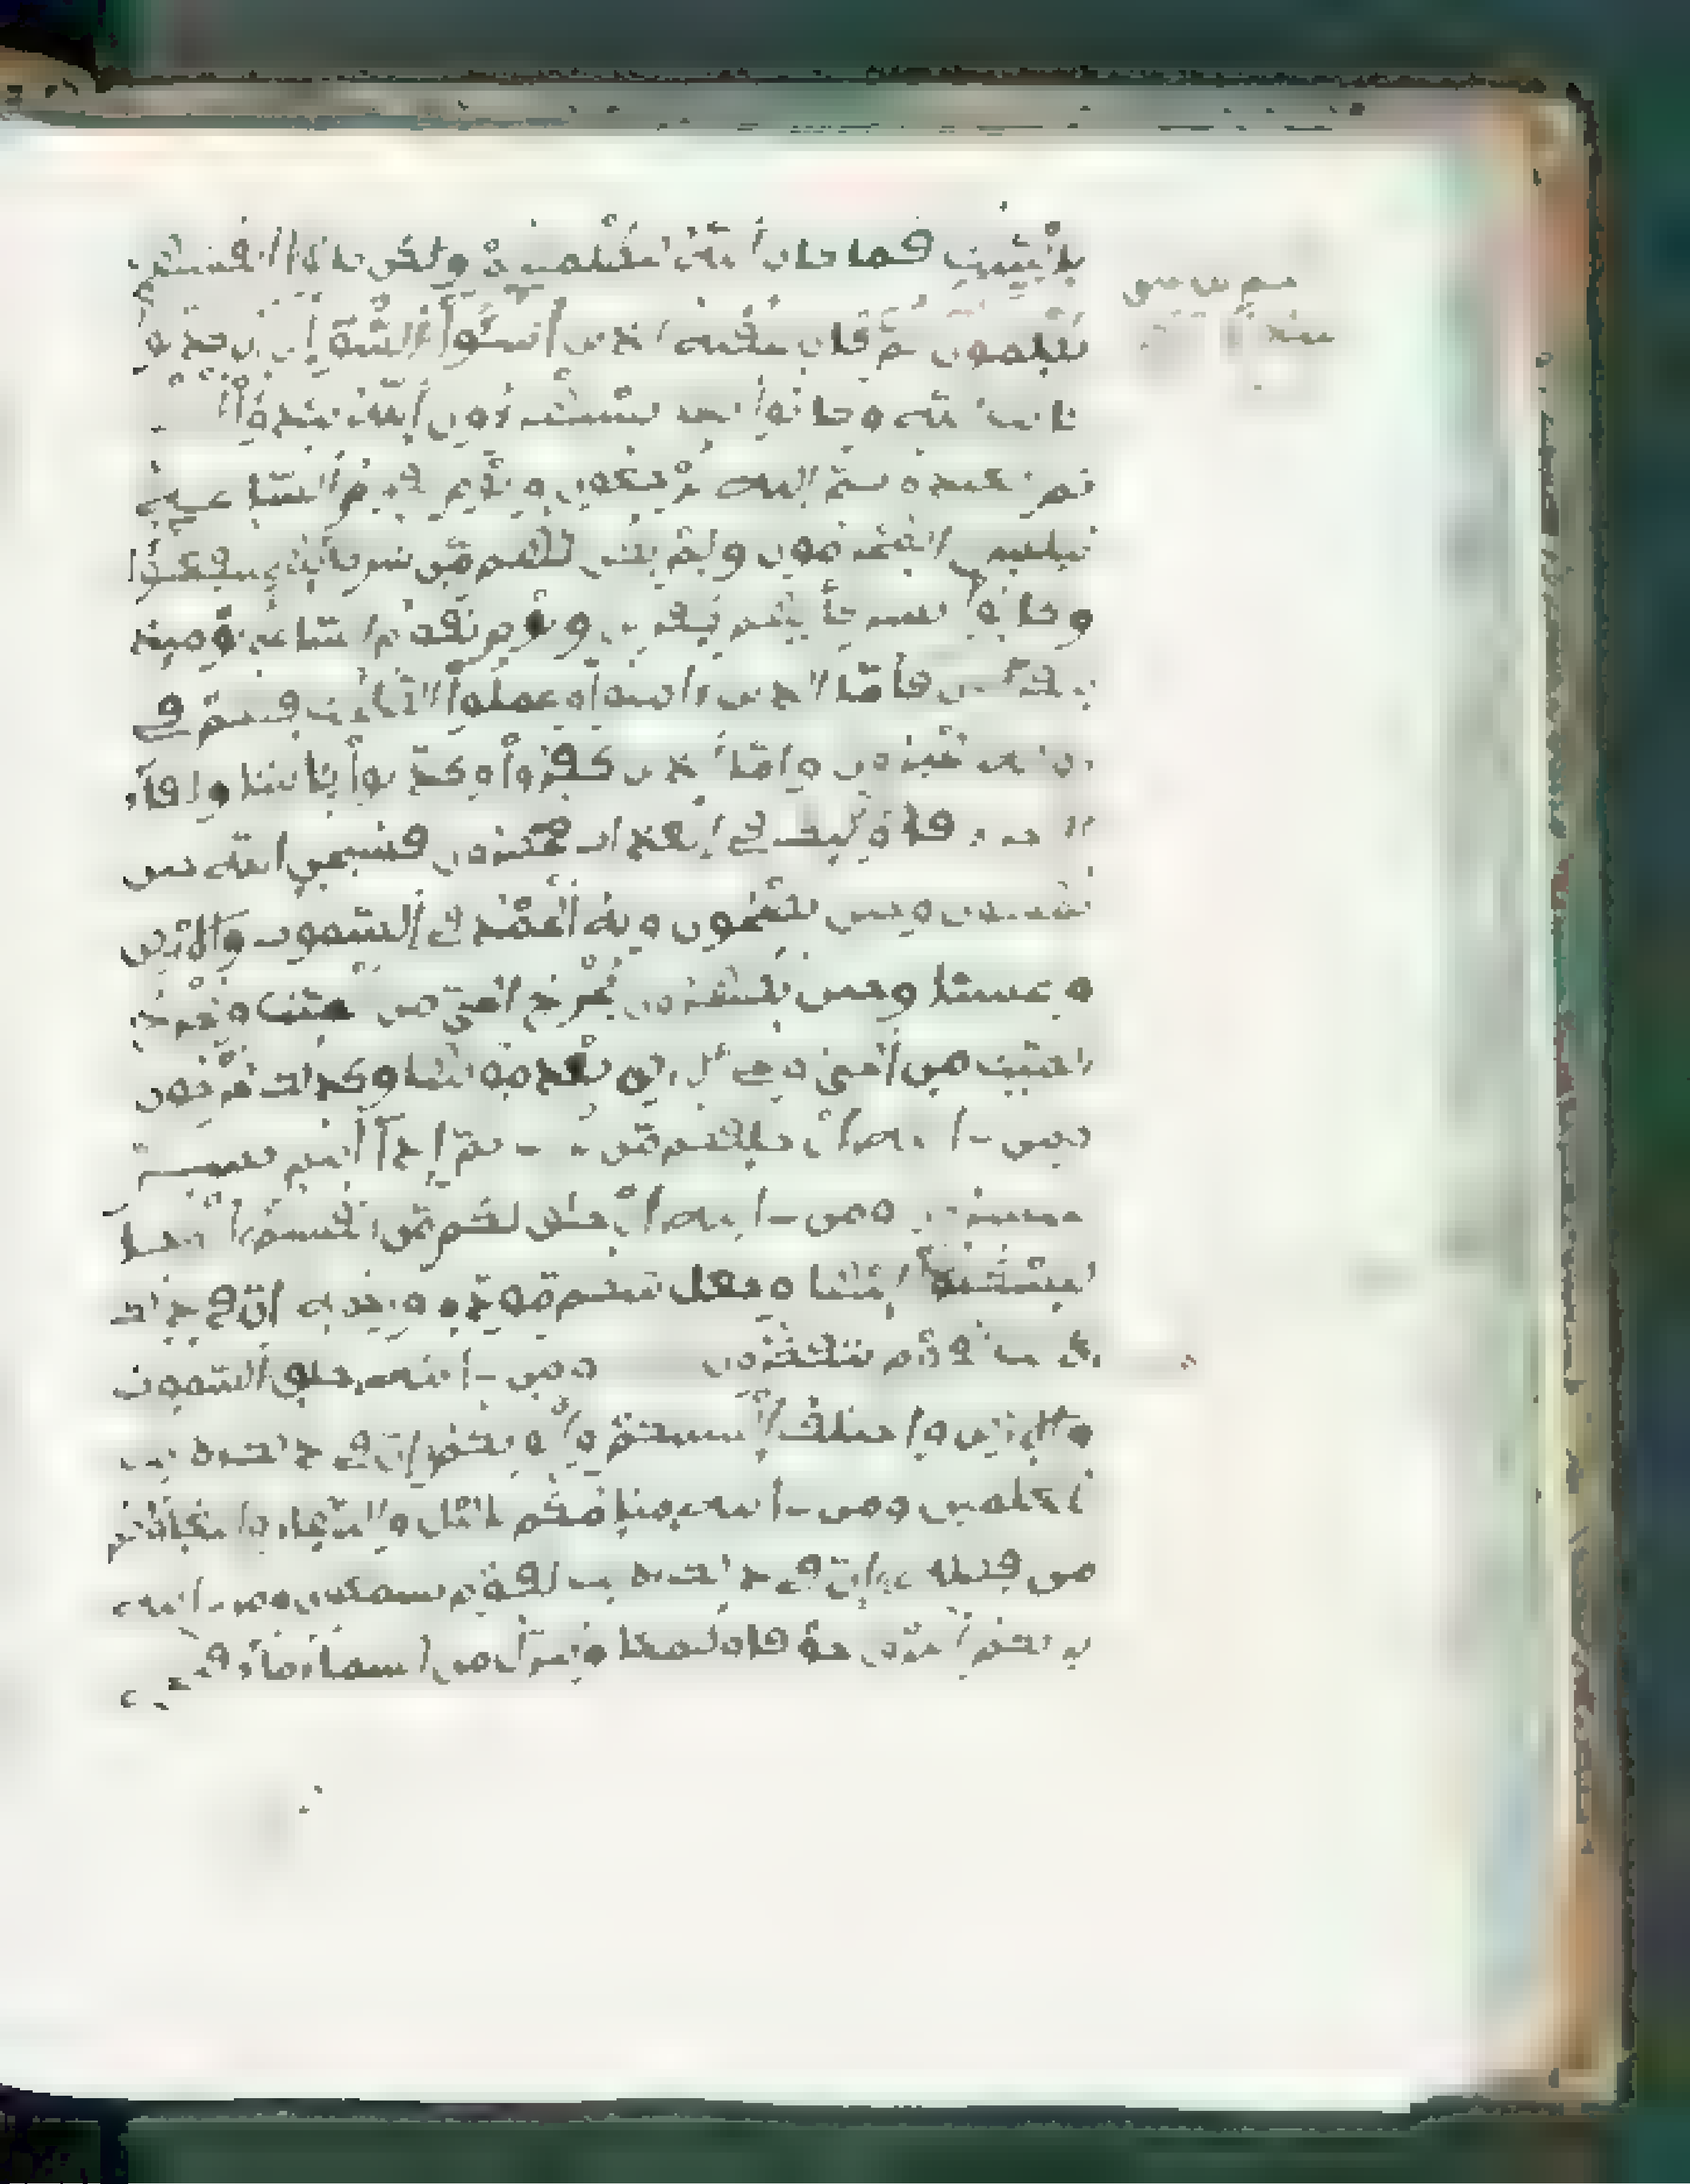 بالبينت فما كان الله ليظلمهم ولكن كانوا أنفسهم
يظلمون ثم كان عقبة الذين أسئوا السوأى أن كذبوا
بايت الله وكانوا بها يستهزءون الله يبدؤا
ثم يعيده ثم إليه ترجعون ويوم تقوم الساعة
يبلس المجرمون ولم يكن لهم من شركائهم شفعؤا
وكانوا بشركائهم كفرين ويوم تقوم الساعة يومئذ
يتفرقون فأما الذين ءامنوا وعملوا الصلحت فهم في
روضة يحبرون وأما الذين كفروا وكذبوا بايتنا ولقاء
الاخرة فأولئك في العذاب محضرون فسبحن الله حين
تمسون وحين تصبحون وله الحمد في السموت والارض
وعشيا وحين تظهرون يخرج الحي من الميت ويخرج
الميت من الحي ويحي الارض بعد موتها وكذلك تخرجون
ومن ءايته أن خلقكم من تراب ثم إذا أنتم بشر
تنتشرون ومن ءايته أن خلق لكم من أنفسكم أزوجا
لتسكنوا إليها وجعل بينكم مودة ورحمة إن في ذلك
لايت لقوم يتفكرون ومن ءايته خلق السموت
والارض واختلف ألسنتكم وألونكم إن في ذلك لايت
للعلمين ومن ءايته منامكم باليل والنهار وابتغاؤكم
من فضله إن في ذلك لايت لقوم يسمعون ومن ءايته
يريكم البرق خوفا وطمعا وينزل من السماء ماء فيحي